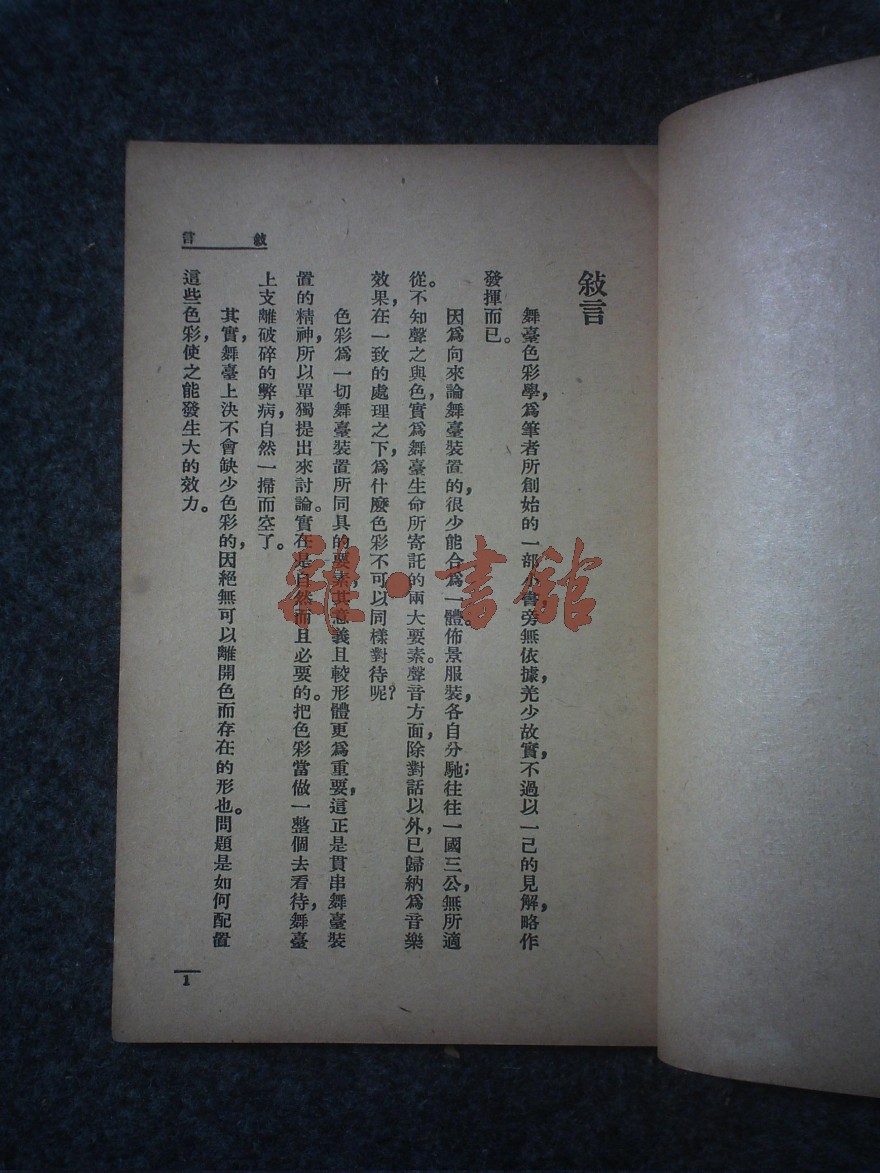 敍言
敍言
舞臺色彩學，爲筆者所創始的一部小書旁無依據，羌少故實，不過以一己的見解，略作
發揮而已。
因爲向來論舞臺裝置的，很少能合爲一體。佈景服裝，各自分馳；往往一國三公，無所適
從。不知聲之與色，實爲舞臺生命所寄託的兩大要素。聲音方面，除對話以外，已歸納爲音樂
效果，在一致的處理之下，爲什麼色彩不可以同樣對待呢？
色彩爲一切舞臺裝置所同具的要素，其意義且較形體更爲重要，這正是貫串舞臺裝
置的精神，所以單獨提出來討論。實在是自然而且必要的。把色彩當做一整個去看待，舞臺
上支離破碎的弊病，自然一掃而空了。
其實，舞臺上決不會缺少色彩的，因絕無可以離開色而存在的形也。問題是如何配置
這些色彩，使之能發生大的效力。
1
雜·書館